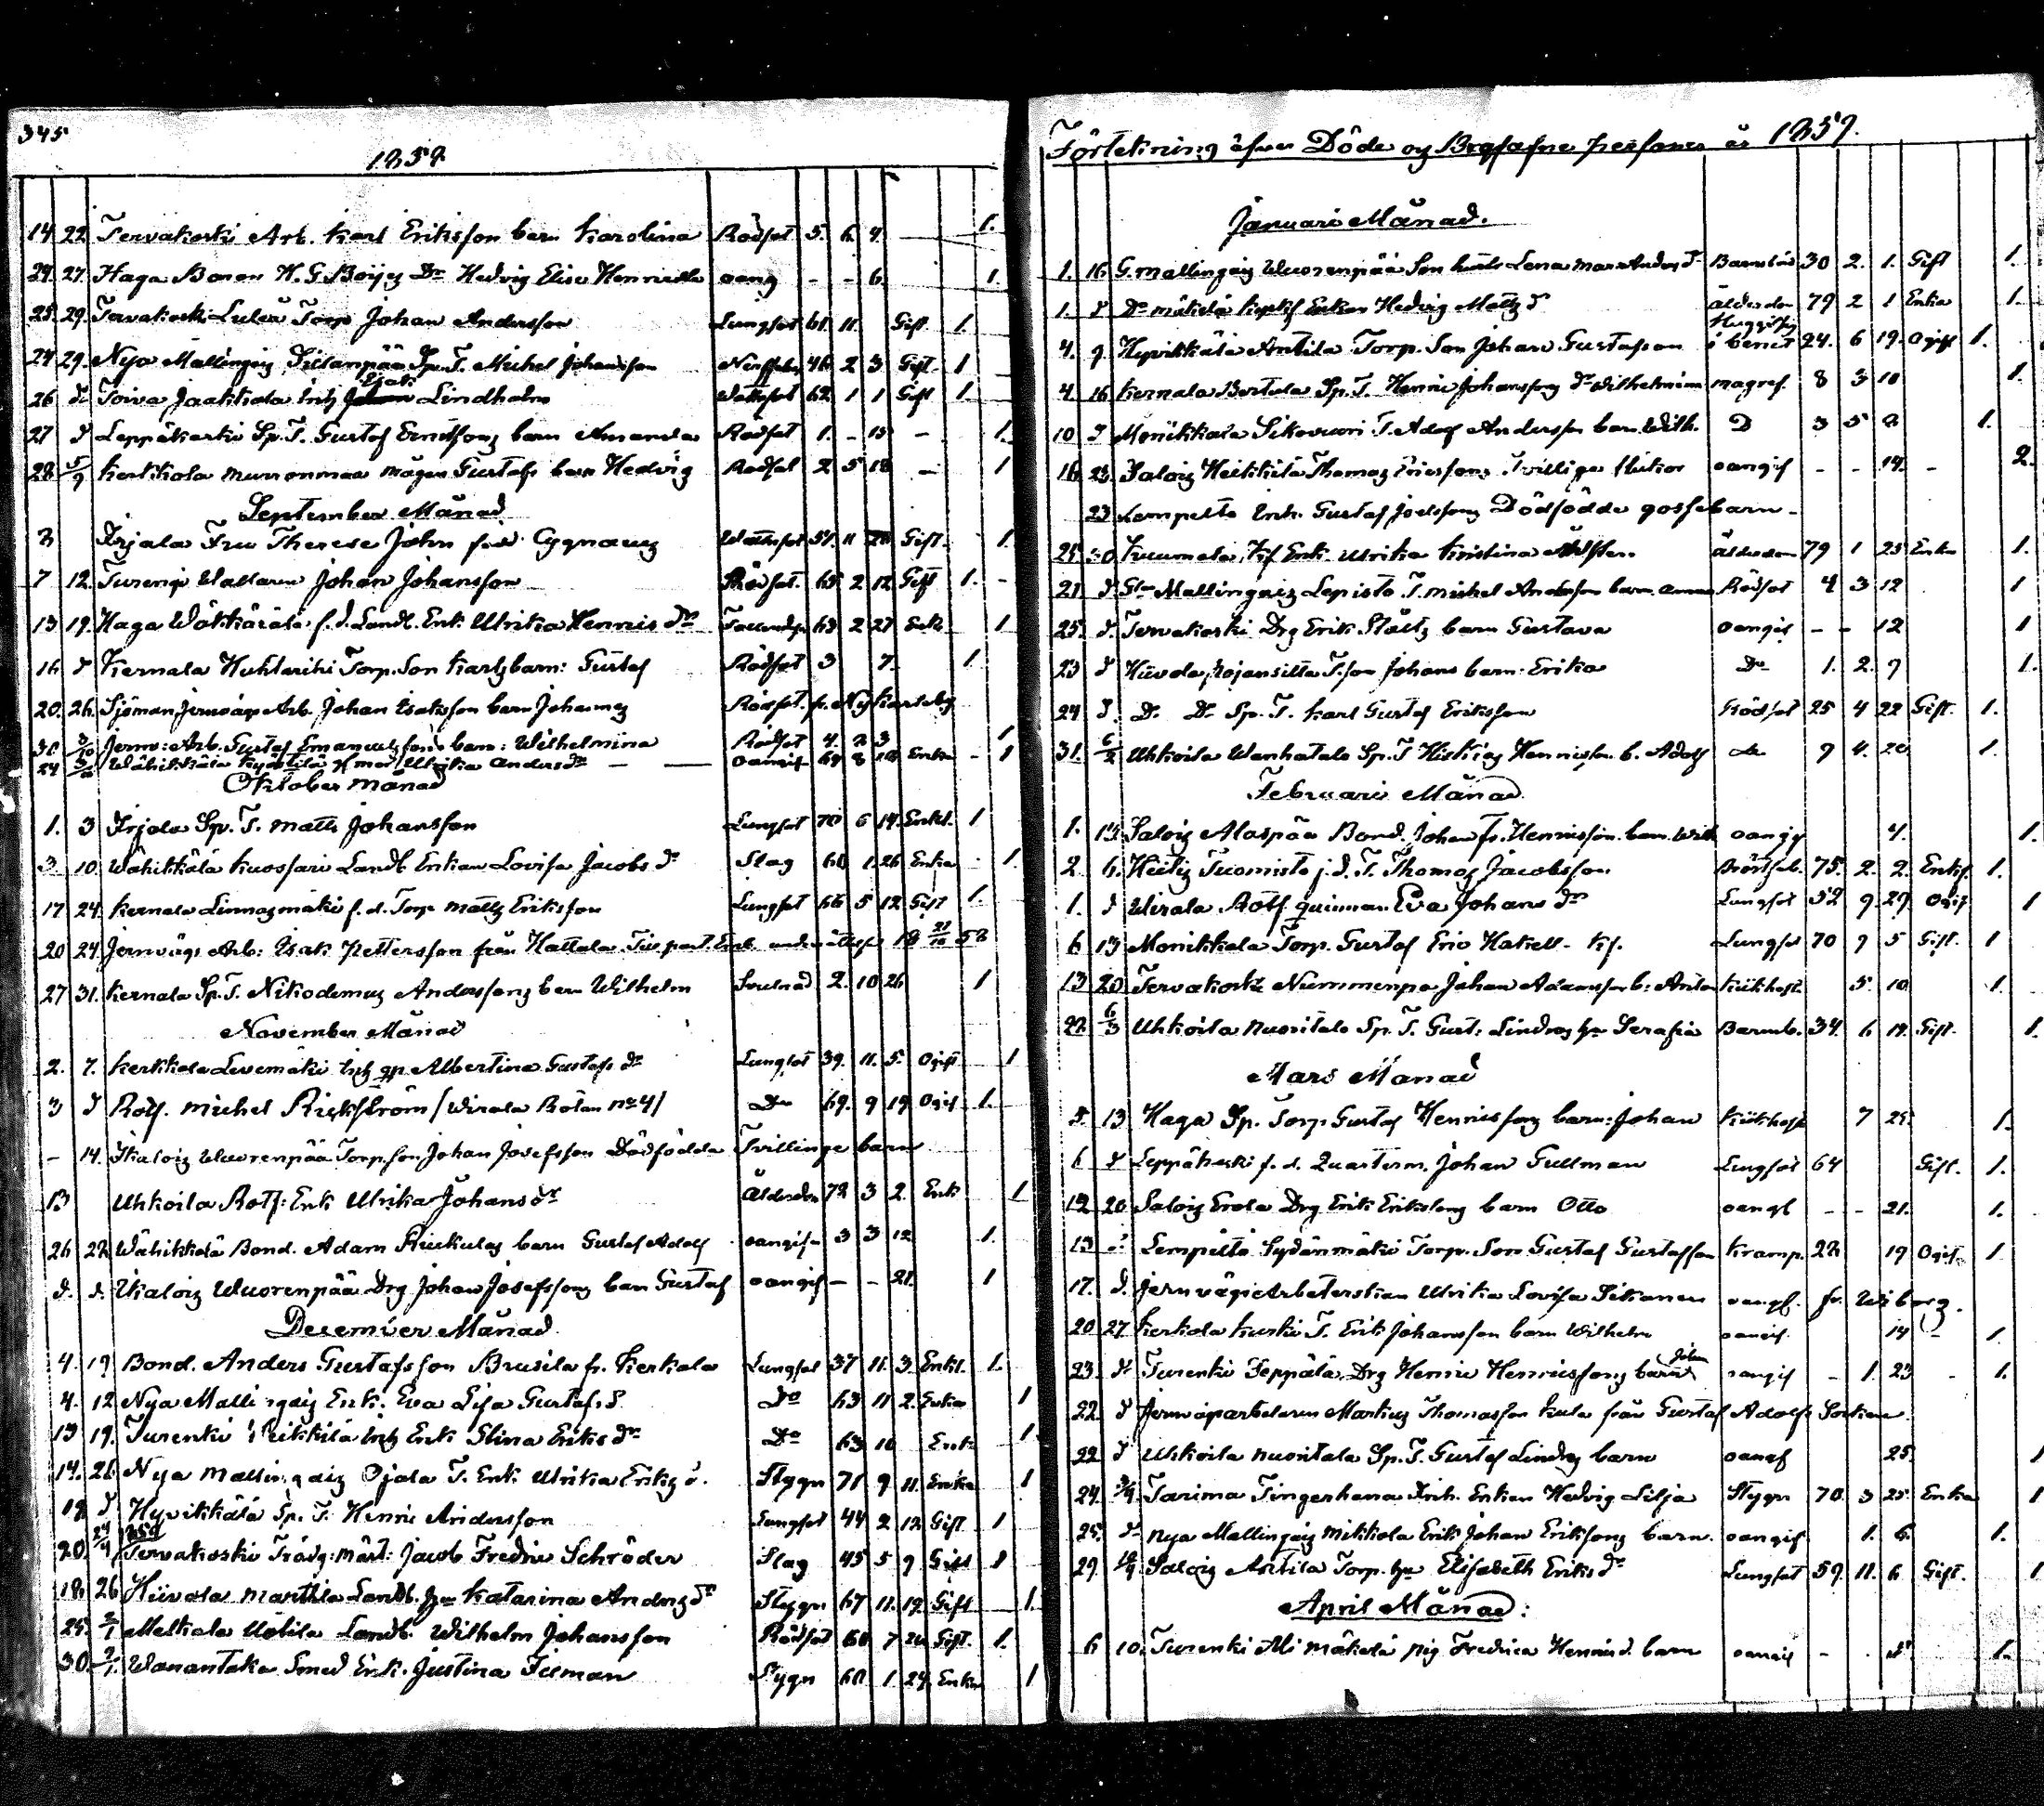 345
1858
14 22 Tervakoski Arb. Karl Eriksson barn Karolina Rödsot 5. 6. 4. — 1.
24. 27. Haga Baron H. G. Boijes Dr Hedvig Elise oang - - 6. 1.
25. 29. Tervakoski Torp Johan Andersson Lungsot 61. 11. Gift. 1.
24 29. Nya Mallingais Sp. T. Michel Johansson 46. 2 3 Gift. 1
26 d. Toiva Jaakkola Inh Lindholm Wattsot 62. 1 1 Gift 1.
27 d Leppäkoski Sp. T. Gustaf barn Amanda Rödsot 1. - 15 - 1.
28 5/9 Kerkkola mågen Gustafs barn Hedvig Rödsot 2 5 18 — 1
September Månad
Irjala Fru Therese John född Cygnaeus Wattusot 57. 11 Gift. 1.
7 12. Turengi Johan Johansson Rödsot. 65 2 12 Gift 1. -
13 19. Haga f. d. Landb. Enk. Ulrika Hennics dr 63 2 27 Enk. 1
16 d Kernala Torp. Son Karls barn: Gustaf Rödsot 3 7. 1.
20. 26. Arb. Johan Isaksson barn Johannes Rödsot. fr. Nykarleby
30 3/10 Jernv: Arb. Gustaf barn: Wilhelmina Rödsot 4. 2 3 1
24 Wähikkälä Ulrika Anders dr — — oangif 8 Enka - 1
Oktober månad
1. 3 Irjala Sp. T. Matts Johansson Lungsot 70 6 14. Enkl. 1
3. 10. Wähikkälä Kuossari Landb Enkan Lovisa Jacobs dr Slag 60 1. 26 Enka 1.
17 24. Kernala Linnasmäki f. d. Torp Matts Eriksson Lungsot 66 5 12 Gift 1.
20 24. Jernvägs Arb: Isak Pettersson från Hattula
27 31. Kernala Sp. T. Nikodemus Anderssons barn Wilhelm 2. 10 26 1
November Månad
2. 7. Kerkkola Levemäki Inh qp Albertina Gustafs dr Lungsot 39. 11. 5. Ogift 1
3 d Rotf. Michel Rickström / Wirala Rotan No 4/ Do 69. 9 19 Ogif. 1.
- 14. Ikalois Wuorenpää Torp. son Johan Josefsson Dödfödda Tvillinge barn
13 Uhkoila Rotf: Enk Ulrika Johans dr Ålderdom 72 3 2. Enk 1
26 Wähikkälä Bond. Adam barn Gustaf Adolf oangifv 3 3 12. 1.
d. d. Ikalois Wuorenpää Drg Johan Josefssons barn Gustaf oangif - - 21. 1
December Månad
4. 19 Bond. Anders Gustafsson Brusila fr. Kerkola Lungsot 37 11. 3. Enkl. 1.
4. 12 Nya Mallingais Enk. Eva Lisa Gustafs d Do 63 11 2. Enka 1
13 19. Turenki Inh Enk Stina Eriks dr Do 63 10 Enk 1.
14. 26 Nya Mallingais Ojala T. Enk. Ulrika Eriks d. Stygn 71 9 11. Enka 1
19 d Hyvikkälä Sp. T. Henric Andersson Lungsot 44 2 12 Gift 1
20. 24/4 1859 Tervakoski Trädg: Mäst: Jacob Fredric Schröder Slag 45 5 9. Gift 1
18. 26 Hiivola Marttila Landb. hu Katarina Anders dr Stygn 67 11. 19. Gift 1.
25. 2/1 Melkkola Uotila Landb. Wilhelm Johansson Rödsot 60 7 Gift. 1.
30 2/1 Wanantaka Smed Enk. Justina Stygn 60 1 29. Enka 1
Förtekning öfver Döde og Begrafne personer år 1859.
Januari Månad.
1. 16. G. Mallingais Wuorenpää Son hustr Lena Anders d. Barnsbörd 30 2. 1. Gift 1.
1. d Do Mäkelä Enkan Hedvig Matts d Ålderdom 79 2 1 Enka 1.
4. 9. Hyvikkälä Anttila Torp. Son Johan Gustafsson i benet 24. 6 19. Ogift 1.
4. 16 Kernala Sp. T. Henric Johanssons dr Wilhelmina magref. 8 3 10 1.
10 d Monikkala T. Adolf Andersson barn. Wilh. D 3 5 2 1.
16 23. Saloig Heikkilä Thomas Ericssons Tvillinge flickor oangif - - 14. - 2.
23 Lampelto Inh. Gustaf Joelssons Dödfödde gossebarn -
25. 30 Enk. Ulrika Kristina Ålderdom 79 1 25 Enka 1.
21. d Mallingais Lepistö T. Michel Andersson barn. Anna Rödsot 4 3 12 1
25. d. Tervakoski Drg Erik Ståltz barn Gustava oangif - - 12 1
23 d Hiivola T. son Johans barn. Erika Do 1. 2. 9 1.
24 d. Do Do Sp. T. Karl Gustaf Eriksson Rödsot 25 4 22 Gift. 1.
31. 6/2 Uhkoila Wanhatalo Sp. T. Hennicsson b. Adolf do 9 4. 20 1.
Februari Månad
1. 13. Saloig Alaspää Bond. Johan Hennicsson. barn. Wilh oangif 4. 1.
2. 6. Tuomisto f. d. T. Thomas Jacobsson Bröstsot. 75. 2. 2. Enkl. 1.
1. d Wirala Rotf. quinnan Eva Johans dr Lungsot 52 9. 29. Ogif 1
6 13 Monikkala Torp. Gustaf Eric Lungsot 70 9 5 Gift. 1
13 20 Tervakoski Nummenpä Johan Adamsson b: Anton Kikhosta 5. 10 1.
22. 6/3 Uhkoila Nuoritalo Sp. T. Gust: Lindros hu Serafia Barnsb. 34. 6 Gift. 1.
Mars Månad
5. 13 Haga Sp. Torp Gustaf Henricssons barn: Johan Kikhosta 7 25. 1.
6 d Leppäkoski f. d. Quarterm. Johan Gullman Lungsot 64 Gift. 1.
12 20 Saloig Erola Drg Erik Erikssons barn Otto oangf - - 21. 1.
13 d Lempelto Sydänmäki Torp. Son Gustaf Gustafsson Kramp. 22 19 Ogift. 1
17. d. Jernvägsarbeterskan Ulrika Lovisa oangf. fr. Wiborg.
20 27 Kerkola Kurki T. Erik Johansson barn Wilhelm oangif. 14 - 1.
23. d Turenki Seppälä Drg Henric Henricssons barn Johan oangif - 1. 23 - 1.
22. d Jernvägsarbetaren Markus Thomasson från Gustaf Adolfs Socken
22 d Uhkoila Nuoritalo Sp. T. Gustaf Lindros barn oangf 25. 1
24. 3/4. Tarima Inh. Enkan Hedvig Lilja Stygn 70. 3 25. Enka 1
25. d Nya Mallingais Mikkola Erik Johan Erikssons barn. oangif. 1. 6. 1.
29. Saloig Anttila Torp. hu Elisabeth Eriks dr Lungsot 59. 11. 6 Gift. 1
April Månad:
6 10. Turenki Ali Mäkelä pig Fredrica Hennics d. barn oangif - 1.